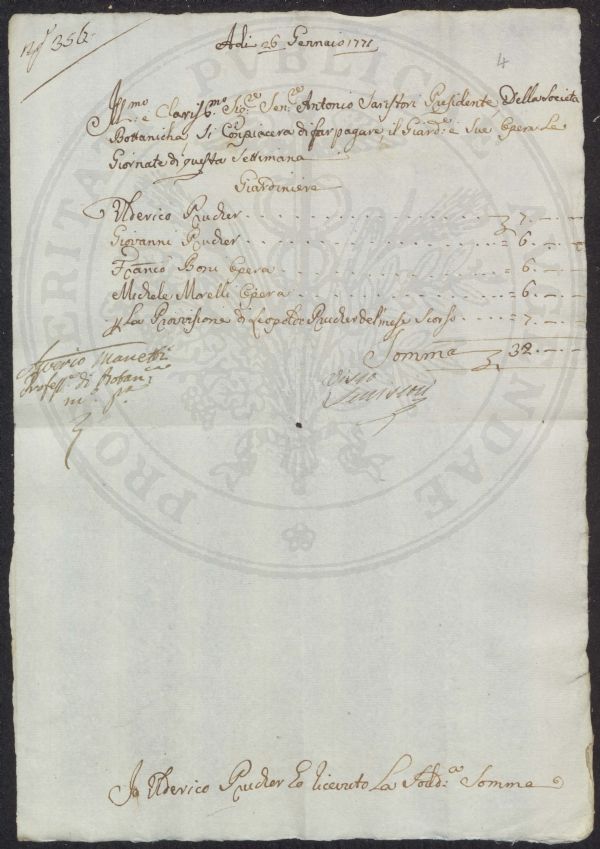 N° 356.
Adi 26 Gennaio 1771
4
Ill:mo e Clariss:mo Sig:re Sen:re Antonio Serristori Presidente Della Societa
Bottanicha Si Compiacera di far pagare il Giard:e e Sue Opera Le
Giornate di questa Settimana
Giardiniere
Ulderico Rucher 7
Giovanni Rucher = 6
Franco Boni Opera = 6
Michele Morelli Opera = 6
La Provvisione di Leopoldo Rucher del mese Scorso = 7
Somma 32
Saverio Manetti
Profess:e di Botan:ca
m° p°
Visto
Serristori
Io Ulderico Rucher Ho ricevuto La Sudd:a Somma
PROSPERITATI PUBLICAE AUGENDAE